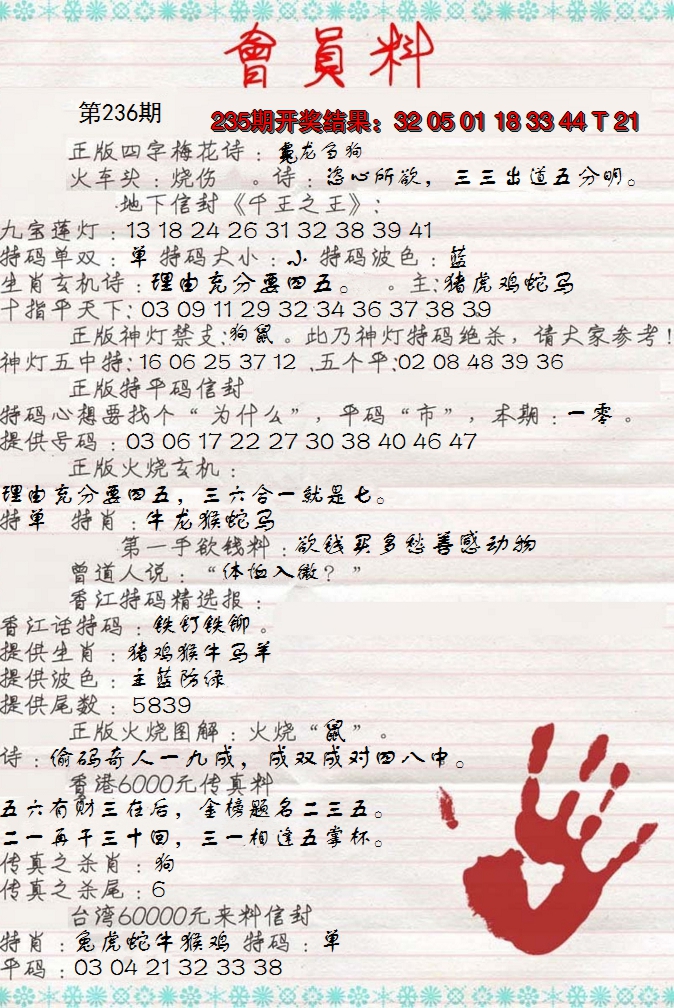 會員料
第236期
235期开奖结果：32 05 01 18 33 44 T 21
正版四字梅花诗：兔龙马狗
火车头：烧伤 。诗：恣心所欲，三三出道五分明。
地下信封《千王之王》：
九宝莲灯：13 18 24 26 31 32 38 39 41
特码单双：单 特码大小：小 特码波色：蓝
生肖玄机诗：理由充分要四五。 。主：猪虎鸡蛇马
十指平天下：03 09 11 29 32 34 36 37 38 39
正版神灯禁支：狗鼠。此乃神灯特码绝杀，请大家参考！
神灯五中特：16 06 25 37 12 .五个平：02 08 48 39 36
正版特平码信封
特码心想要找个“为什么”，平码“市”，本期：一零。
提供号码：03 06 17 22 27 30 38 40 46 47
正版火烧玄机：
理由充分要四五，三六合一就是七。
特单 特肖：牛龙猴蛇马
第一手欲钱料：欲钱买多愁善感动物
曾道人说：“体恤入微？”
香江特码精选报：
香江话特码：铁钉铁铆。
提供生肖：猪鸡猴牛马羊
提供波色：主蓝防绿
提供尾数：5839
正版火烧图解：火烧“鼠”。
诗：偷码奇人一九成，成双成对四八中。
香港6000元传真料
五六有财三在后，金榜题名二三五。
二一再干三十回，三一相逢五掌杯。
传真之杀肖：狗
传真之杀尾：6
台湾60000元来料信封
特肖：兔虎蛇牛猴鸡 特码：单
平码：03 04 21 32 33 38